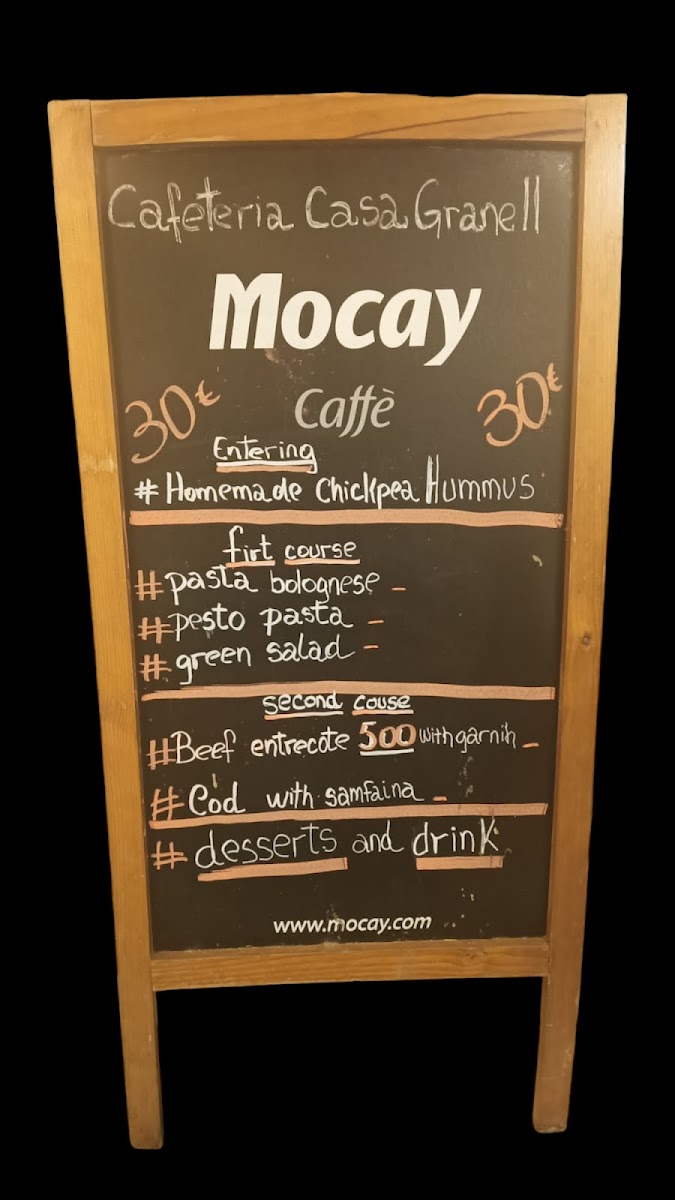 Cafeteria Casa Granell
Mocay
30€ Caffè 30€
Entering
# Homemade Chickpea Hummus
firt course
# pasta bolognese -
# pesto pasta -
# green salad -
second couse
# Beef entrecote 500 with garnih -
# Cod with samfaina -
# desserts and drink
www.mocay.com